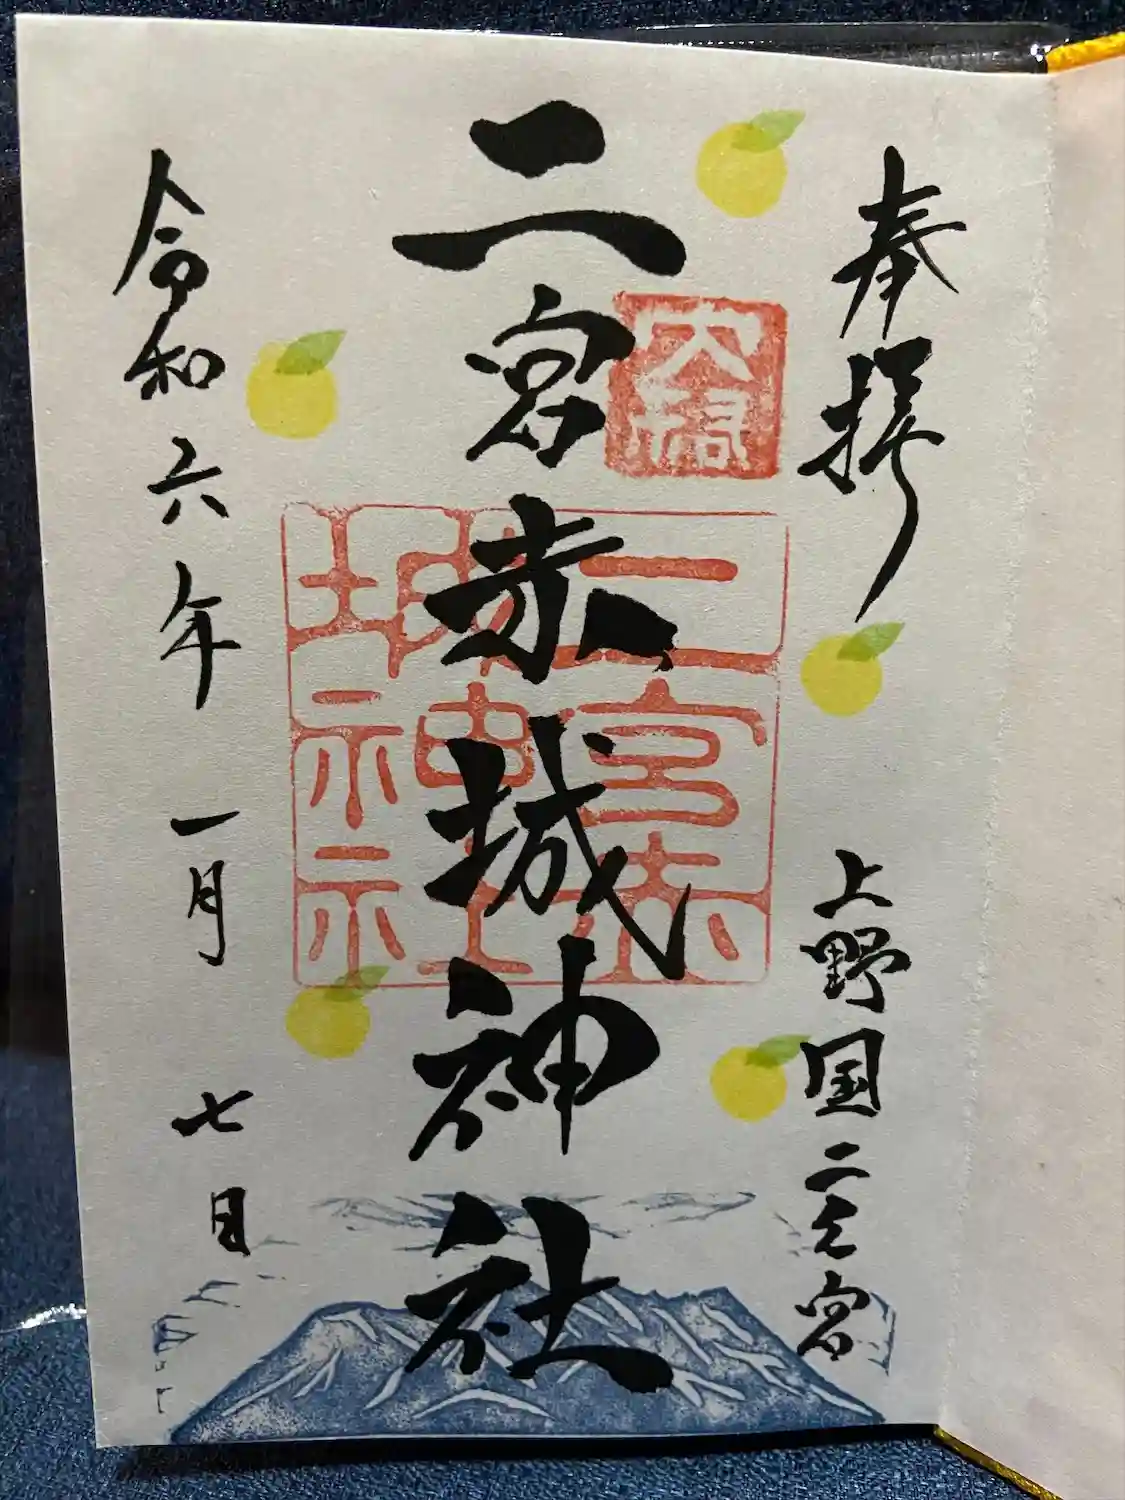 奉拝
上野国二之宮
二宮赤城神社
二宮赤城神社
令和六年一月七日